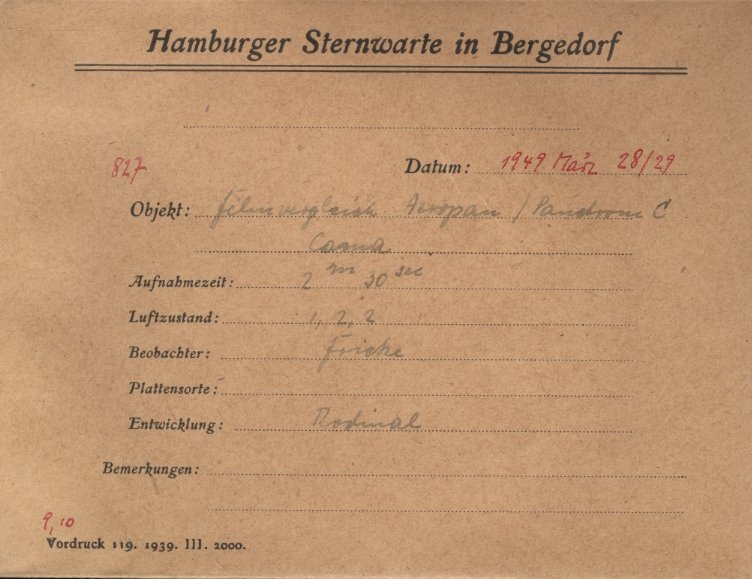 Hamburger Sternwarte in Bergedorf
827 Datum: 1949 März 28/29
Objekt: Filmvergleich Aeropan / C
Coma
Aufnahmezeit: 2 m 30 sec
Luftzustand: 1, 2, 2
Beobachter: Fricke
Plattensorte:
Entwicklung: Rodinal
Bemerkungen:
9,10
Vordruck 119. 1939. III. 2000.